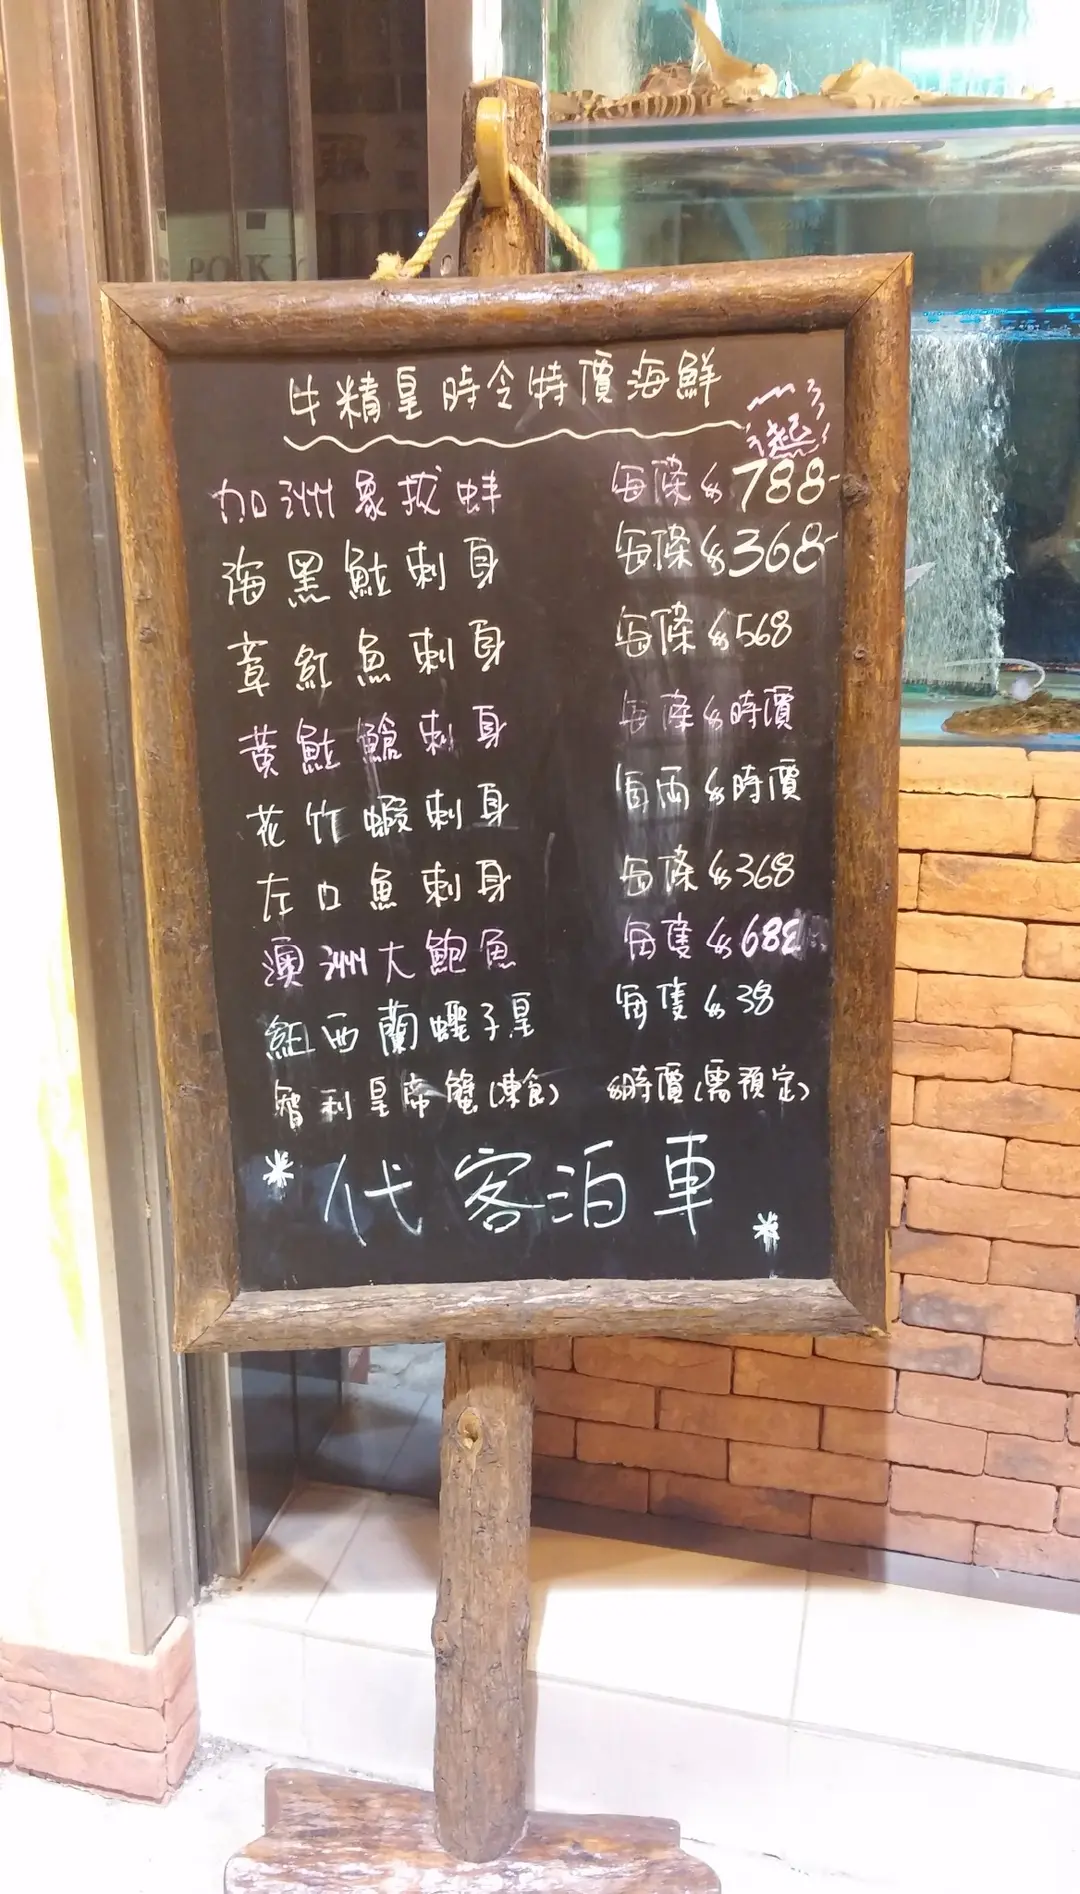 牛精皇時令特價海鮮
起
加洲象拔蚌 每條$788-
海黑鮎刺身 每條$368-
章紅魚刺身 每條$568
黄鮎鱠刺身 每條$時價
花竹蝦刺身 每両$時價
左口魚刺身 每條$368
澳洲大鮑魚 每隻$688
紐西蘭蟶子皇 每隻$38
智利皇帝蟹(凍食) $時價(需預定)
*代客泊車*